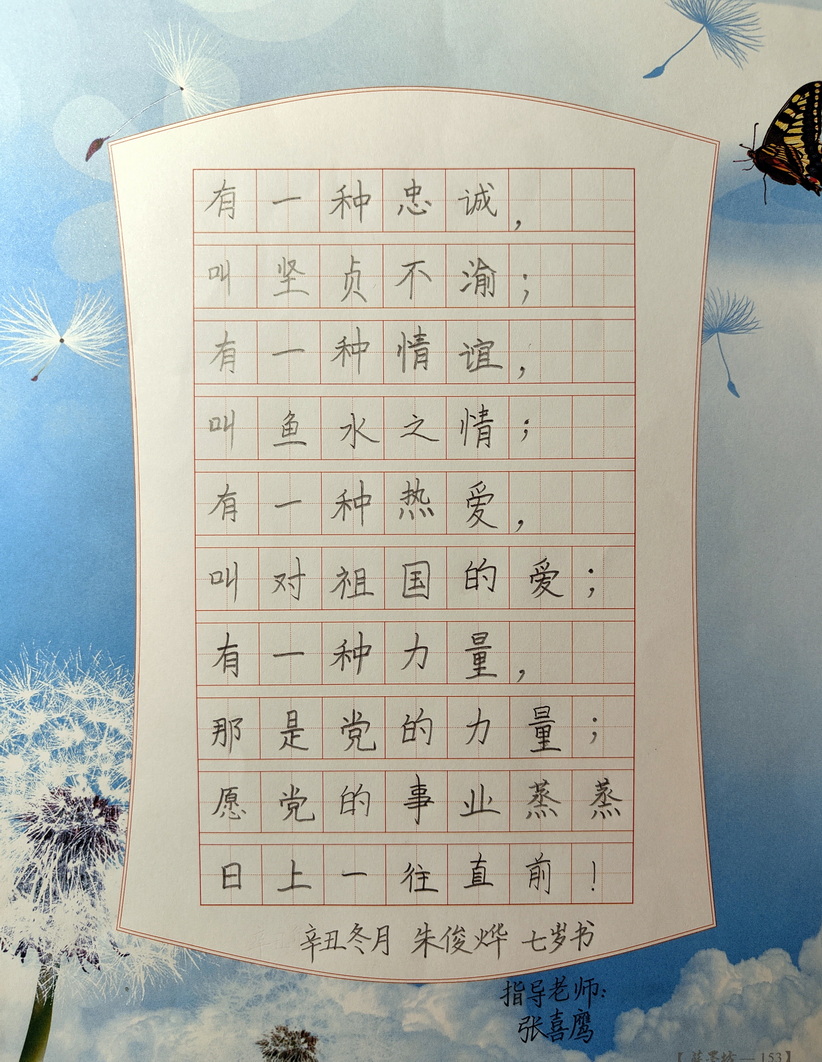 有一种忠诚，
叫坚贞不渝；
有一种情谊，
叫鱼水之情；
有一种热爱，
叫对祖国的爱；
有一种力量，
那是党的力量；
愿党的事业蒸蒸
日上一往直前！
辛丑冬月 朱俊烨 七岁书
指导老师：
张喜鹰
153】